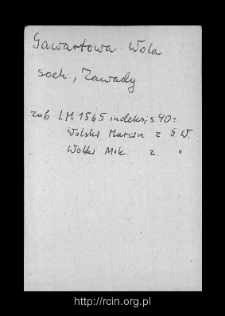 Gawartowa Wola
soch., Zawady
zob LM 1565 indeks s. 40:
Wolski Marcin z G. W.
Wolski Mik. z "
© http://rcin.org.pl